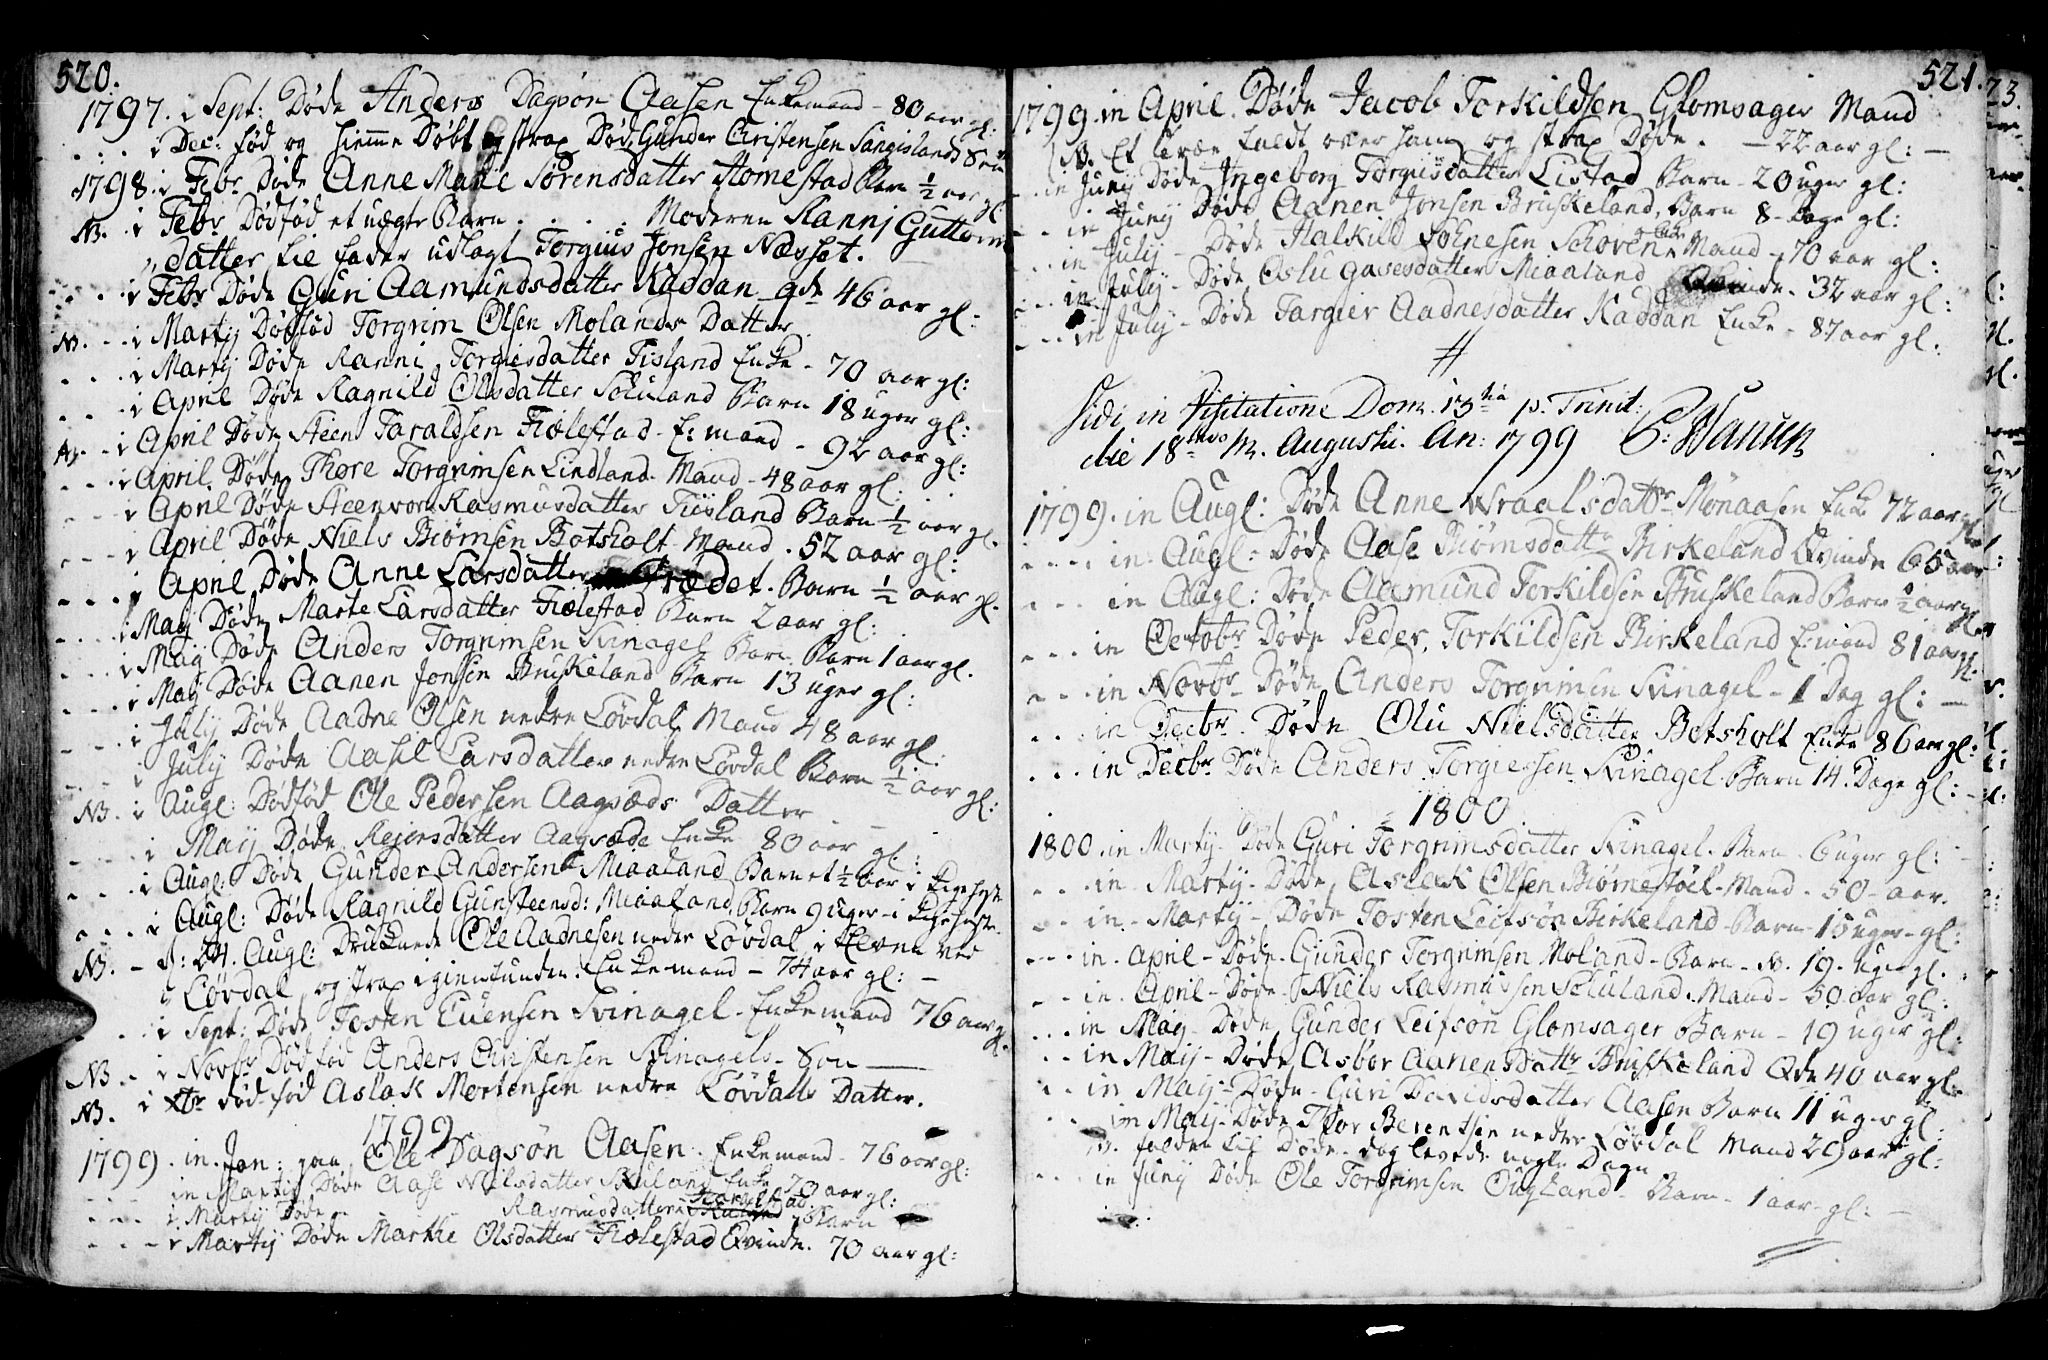 520.
1797. i Sept: Døde Anders Dagsøn Aasen Enkemand - 80 aar gl:
i Dec: fød og hiemme Døbt og strax Død Gunder Christensen Sangislands Søn
1798. i Febr Døde Anne Marie Sørensdatter Homestad Barn ½ aar gl
NB. i Febr Dødfød et uægte Barn. Moderen Ranni Guttorms
datter Lie fader udlagt Torgius Jonsen Næsset.
i Febr Døde Guri Aamundsdatter Kaddan Qde 46 aar gl:
NB. i Martij Dødfød Torgrim Olsen Molands Datter
i Martij Døde Ranni Torgiesdatter Tisland Enke - 70 aar gl:
i April Døde Ragnild Olsdatter Soluland Barn 18 uger gl:
i April Døde Steen Taraldsen Fiælestad - E: mand - 92 aar gl:
i April. Døde Thore Torgrimsen Lindland. Mand - 48 aar gl:
i April Døde Steenvor Rasmusdatter Tiisland Barn ½ aar gl.
i April Døde Niels Biørnsen Botsholt Mand. 52 aar gl:
i April Døde Anne Larsdatter Trædet. Barn ½ aar gl.
i Maij Døde Marte Larsdatter Fiælestad Barn 2 aar gl:
i Maij Døde Anders Torgrimsen Svinagel Barn Barn 1 aar gl.
i Maij Døde Aanen Jonsen Bruskeland Barn 13 uger gl:
i July Døde Aadne Olsen nedre Løvdal Mand 48 aar gl:
i July Døde Aasel Larsdatter nedre Løvdal Barn ½ aar gl:
NB. i Augl: Dødfød Ole Pedersen Aagsæds Datter
i Maij Døde Reiersdatter Aagsæde Enke 80 aar gl:
i Augl: Døde Gunder Andersen Miaaland Barn et ½ aar i Kighoste
i Augl: Døde Ragnild Gunsteensd: Miaaland Barn 9 uger - i Kighoste
NB. - d: 24. Augl: Druknede Ole Aadnesen nedre Løvdal i Elven ved
Løvdal, og strax igienfunden. Enkemand - 74 aar gl: -
i Sept: Døde Tosten Evensen Svinagel - Enkemand 76 aar gl.
NB - i Novbr Dødfød Anders Christensen Svinagels - Søn
NB. i Xbr død-fød Aslak Mortensen nedre Løvdals Datter.
1799
1799. in. Jan: Ole Dagsøn Aasen. Enkemand - 76 aar gl:
in Martij Døde Aase Nielsdatter Enke 70 aar gl:
i Martij Døde Rasmusdatter Barn
i Martij Døde Marthe Olsdatter Fiælestad Qvinde. 70 aar gl:
521.
1799 in April. Døde Jacob Torkildsen Glomsager Mand
NB. Et Træe faldt over ham og strax Døde. - 22 aar gl: -
in Junij Døde Ingeborg Torgiusdatter Listad Barn - 20 uger gl:
in Junij Døde Aanen Jonsen Bruskeland, Barn 8 - Dage gl:
in July - Døde Halkild Mand - 70 aar gl:
in July - Døde Oslu Gavesdatter Miaaland Qvinde - 32 aar gl:
in July - Døde Targier Aadnesdatter Kaddan Enke - 87 aar gl:
Vidi in Visitatione Dom. 13tia p. Trinit:
die 18vo M. Augusti. An: 1799 P: Hansen
1799. in Augl: Døde Anne Wraalsdattr Mønaasen Enke 72 aar gl
in Augl: Døde Aase Biørnsdattr Birkeland Qvinde 65 aar
in Augl: Døde Aamund Torkildsen Bruskeland Barn ½ aar gl
in Octobr Døde Peder Torkildsen Birkeland E: mand 81 aar gl.
in Novbr Døde Anders Torgrimsen Svinagel - 1 Dag gl: -
in Decbr. Døde Olu Nielsdatter Botsholt Enke 86 aar gl:
in Decbr Døde Anders Torgiersen Svinagel - Barn 14. Dage gl: -
1800
1800. in Martij - Døde Guri Torgrimsdatter Svinagel. Barn. 6 uger gl: -
in. Martij - Døde Aslak Olsen Biørnestøel - Mand - 50 - aar.
in - Martij - Døde Tosten Leifsøn Birkeland - Barn - 16 uger - gl:
in. April - Døde. Gunder Torgrimsen Moland - Barn - N. 19. uger gl.
in. April - Døde - Niels Rasmussen Soluland. Mand - 50 aar gl:
in Maij - Døde Gunder Leifsøn Glomsager Barn - 19 uger gl:
in Maij - Døde Asbor Aanensdattr Bruskeland Qde 40 aar gl:
in Maij - Døde - Guri Davidsdatter Aasen Barn 11 uger gl:
in Maij - Døde Thor Berentsen nedre Løvdal Mand 29 aar gl:
N. falden til Døde - dog levede nogle Dage
in Junij Døde Ole Torgrimsen Ougland - Barn - 1 aar - gl: -